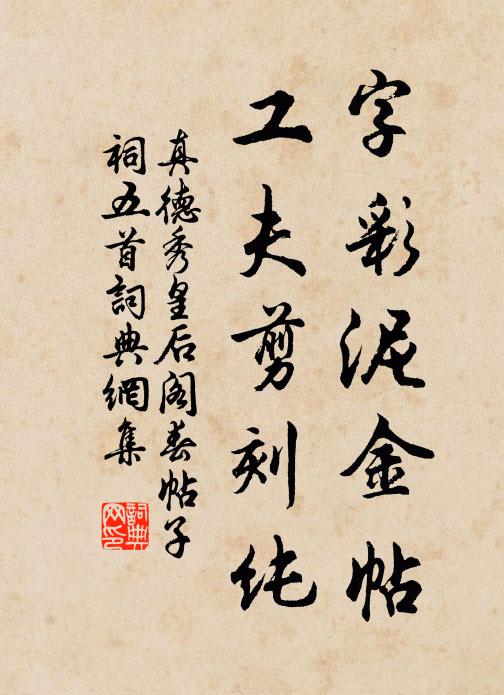 字彩泥金帖
工夫剪刻纯
真德秀皇后阁春帖子
祠五首詞典網集
詞典网印